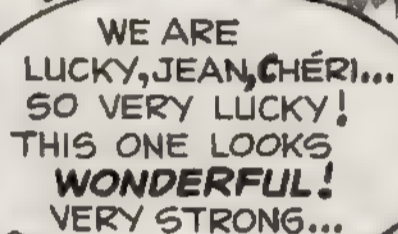 WE ARE
LUCKY, JEAN, CHÉRI...
SO VERY LUCKY!
THIS ONE LOOKS
WONDERFUL!
VERY STRONG...